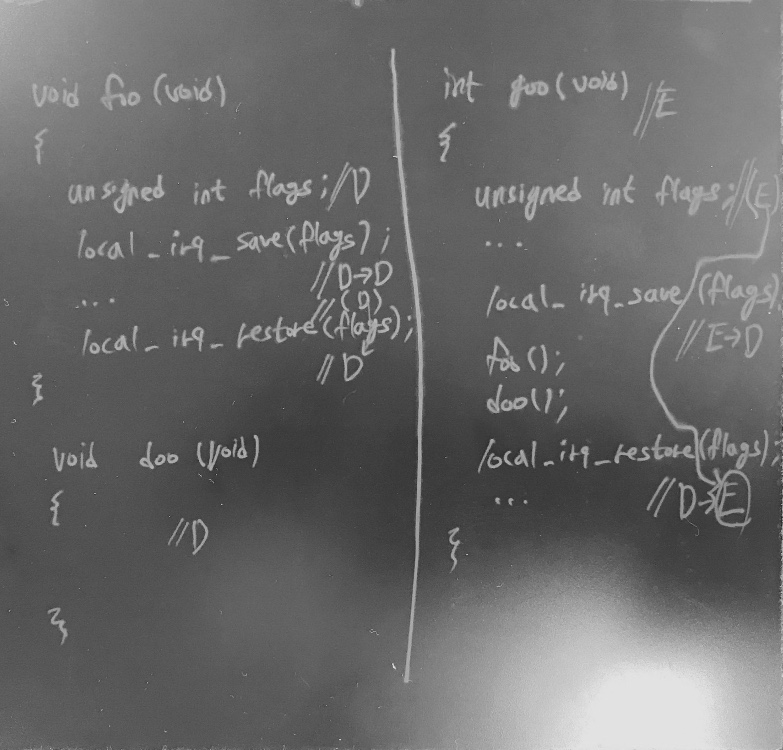 void foo (void)
{
unsigned int flags; //D
local_irq_save(flags);
//D→D
...
//(D)
local_irq_restore(flags);
//D
}
void doo (void)
{
//D
}
int goo(void) //E
{
unsigned int flags; //(E)
...
local_irq_save(flags)
//E→D
foo();
doo();
local_irq_restore(flags);
... //D→E
}